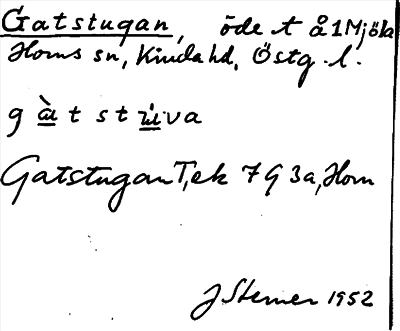 Gatstugan, öde t å 1 Mjöla
Horns sn, Kinda hd, Östg. l.
g à t s t ù v a
Gatstugan T, ek 7 G 3a, Horn
J Sterner 1952